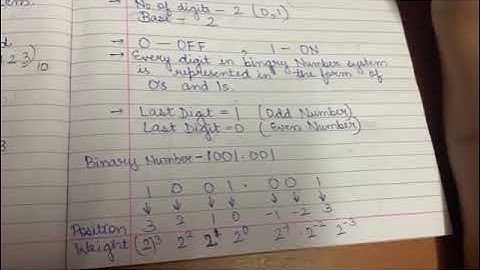 → No of digits - 2 (0,1)
Base - 2
→ 0 - OFF , 1 - ON
→ Every digit in binary Number system
is represented in the form of
0's and 1s.
2 3)10
→ Last Digit = 1 (Odd Number)
Last Digit = 0 (Even Number)
Binary Number - 1001.001
1 0 0 1 . 0 0 1
↓ ↓ ↓ ↓ ↓ ↓ ↓
Position 3 2 1 0 -1 -2 3
Weight (2)³ 2² 2¹ 2⁰ 2⁻¹ 2⁻² 2⁻³